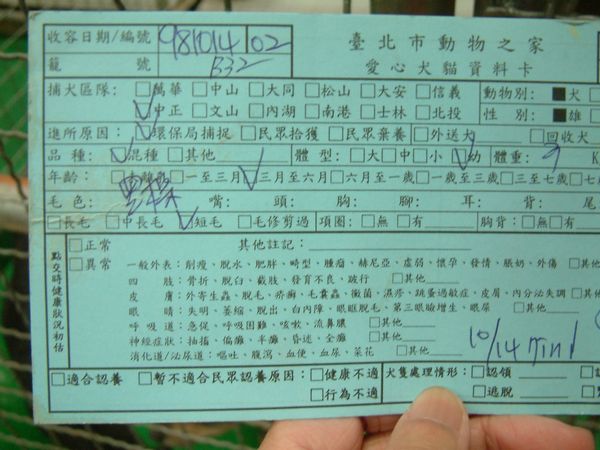 收容日期/編號 981014 02
臺北市動物之家
籠號 B32
愛心犬貓資料卡
捕犬區隊: □萬華 □中山 □大同 □松山 □大安 □信義 動物別: ■犬
□中正 □文山 □內湖 □南港 □士林 □北投 性別: ■雄
進所原因: □環保局捕捉 □民眾拾獲 □民眾棄養 □外送犬 □回收犬
品種: □混種 □其他 體型: □大□中□小□幼 體重: K
年齡: □一至三月□三月至六月□六月至一歲□一歲至三歲□三至七歲□七
毛色: 嘴: 頭: 胸: 腳: 耳: 背: 尾
□長毛 □中長毛 □短毛 □毛修剪過 項圈: □無 □有 胸背: □無□有
點交時健康狀況初估
□正常 其他註記:
□異常 一般外表: 削瘦、脫水、肥胖、畸型、腫瘤、赫尼亞、虛弱、懷孕、發情、脹奶、外傷 □其他
四肢: 骨折、脫臼、截肢、發育不良、跛行 □其他
皮膚: 外寄生蟲、脫毛、疥癬、毛囊蟲、黴菌、濕疹、跳蚤過敏症、皮屑、內分泌失調 □其他
眼睛: 失明、萎縮、脫出、白內障、眼眶脫毛、第三眼瞼增生、眼屎 □其他
呼吸道: 急促、呼吸困難、咳嗽、流鼻膿 □其他
神經症狀: 抽搐、偏癱、半癱、昏迷、全癱 □其他
消化道/泌尿道: 嘔吐、腹瀉、血便、血尿、菜花 □其他
10/14
□適合認養 □暫不適合民眾認養原因: □健康不適 犬隻處理情形: □認領
□行為不適 □逃脫